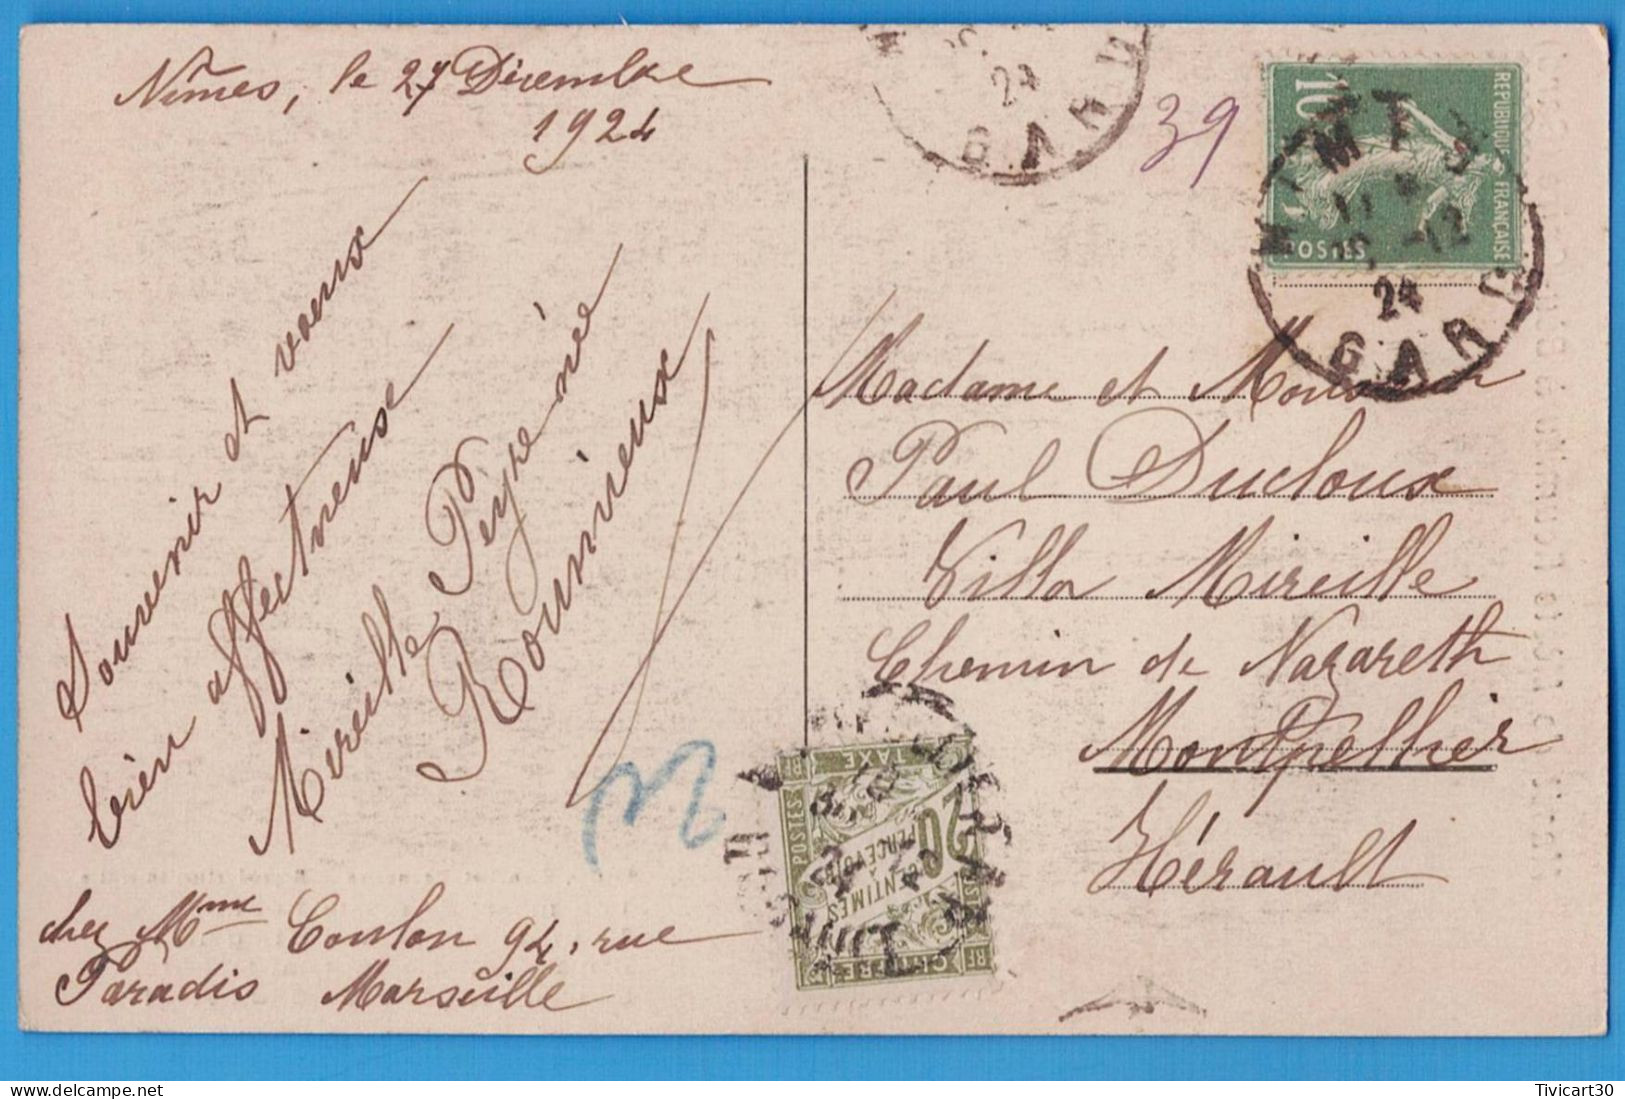 Nîmes, le 27 Décembre
1924
Souvenir et vœux
bien affectueux
Mireille Peyre née
Roumieux
chez Mme Coulon 94, rue
Paradis Marseille
39
Madame et Monsieur
Paul Ducloux
Villa Mireille
Chemin de Nazareth
Montpellier
Hérault
10
REPUBLIQUE FRANÇAISE
POSTES
24
GARD
12
24
GARD
RF TAXE
POSTES
20
CENTIMES
A
PERCEVOIR
CHIFFRE RF
Tivicart30